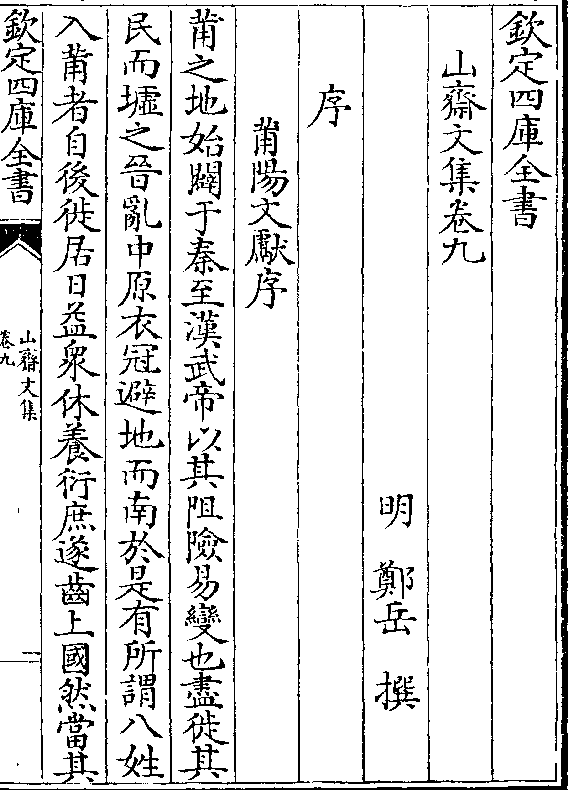 欽定四庫全書
山齋文集卷九
明 鄭岳 撰
序
莆陽文獻序
莆之地始闢于秦至漢武帝以其阻險易變也盡徙其
民而墟之晉亂中原衣冠避地而南於是有所謂八姓
入莆者自後徙居日益衆休養衍庶遂齒上國然當其
欽定四庫全書
山齋文集
卷九